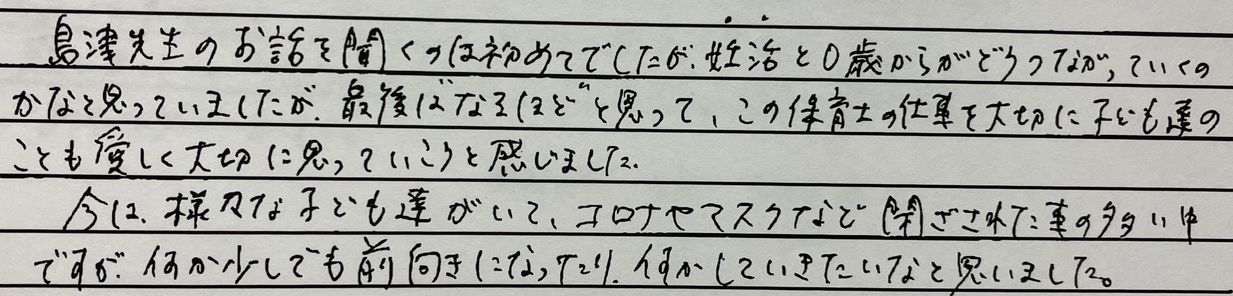 島津先生のお話を聞くのは初めてでしたが、妊活と0歳からがどうつながっていくの
かなと思っていましたが、最後は"なるほど"と思って、この保育士の仕事を大切に子ども達の
ことも愛しく大切に思っていこうと感じました。
今は、様々な子ども達がいて、コロナやマスクなど閉ざされた事の多い中
ですが、何か少しでも前向きになったり、何かしていきたいなと思いました。